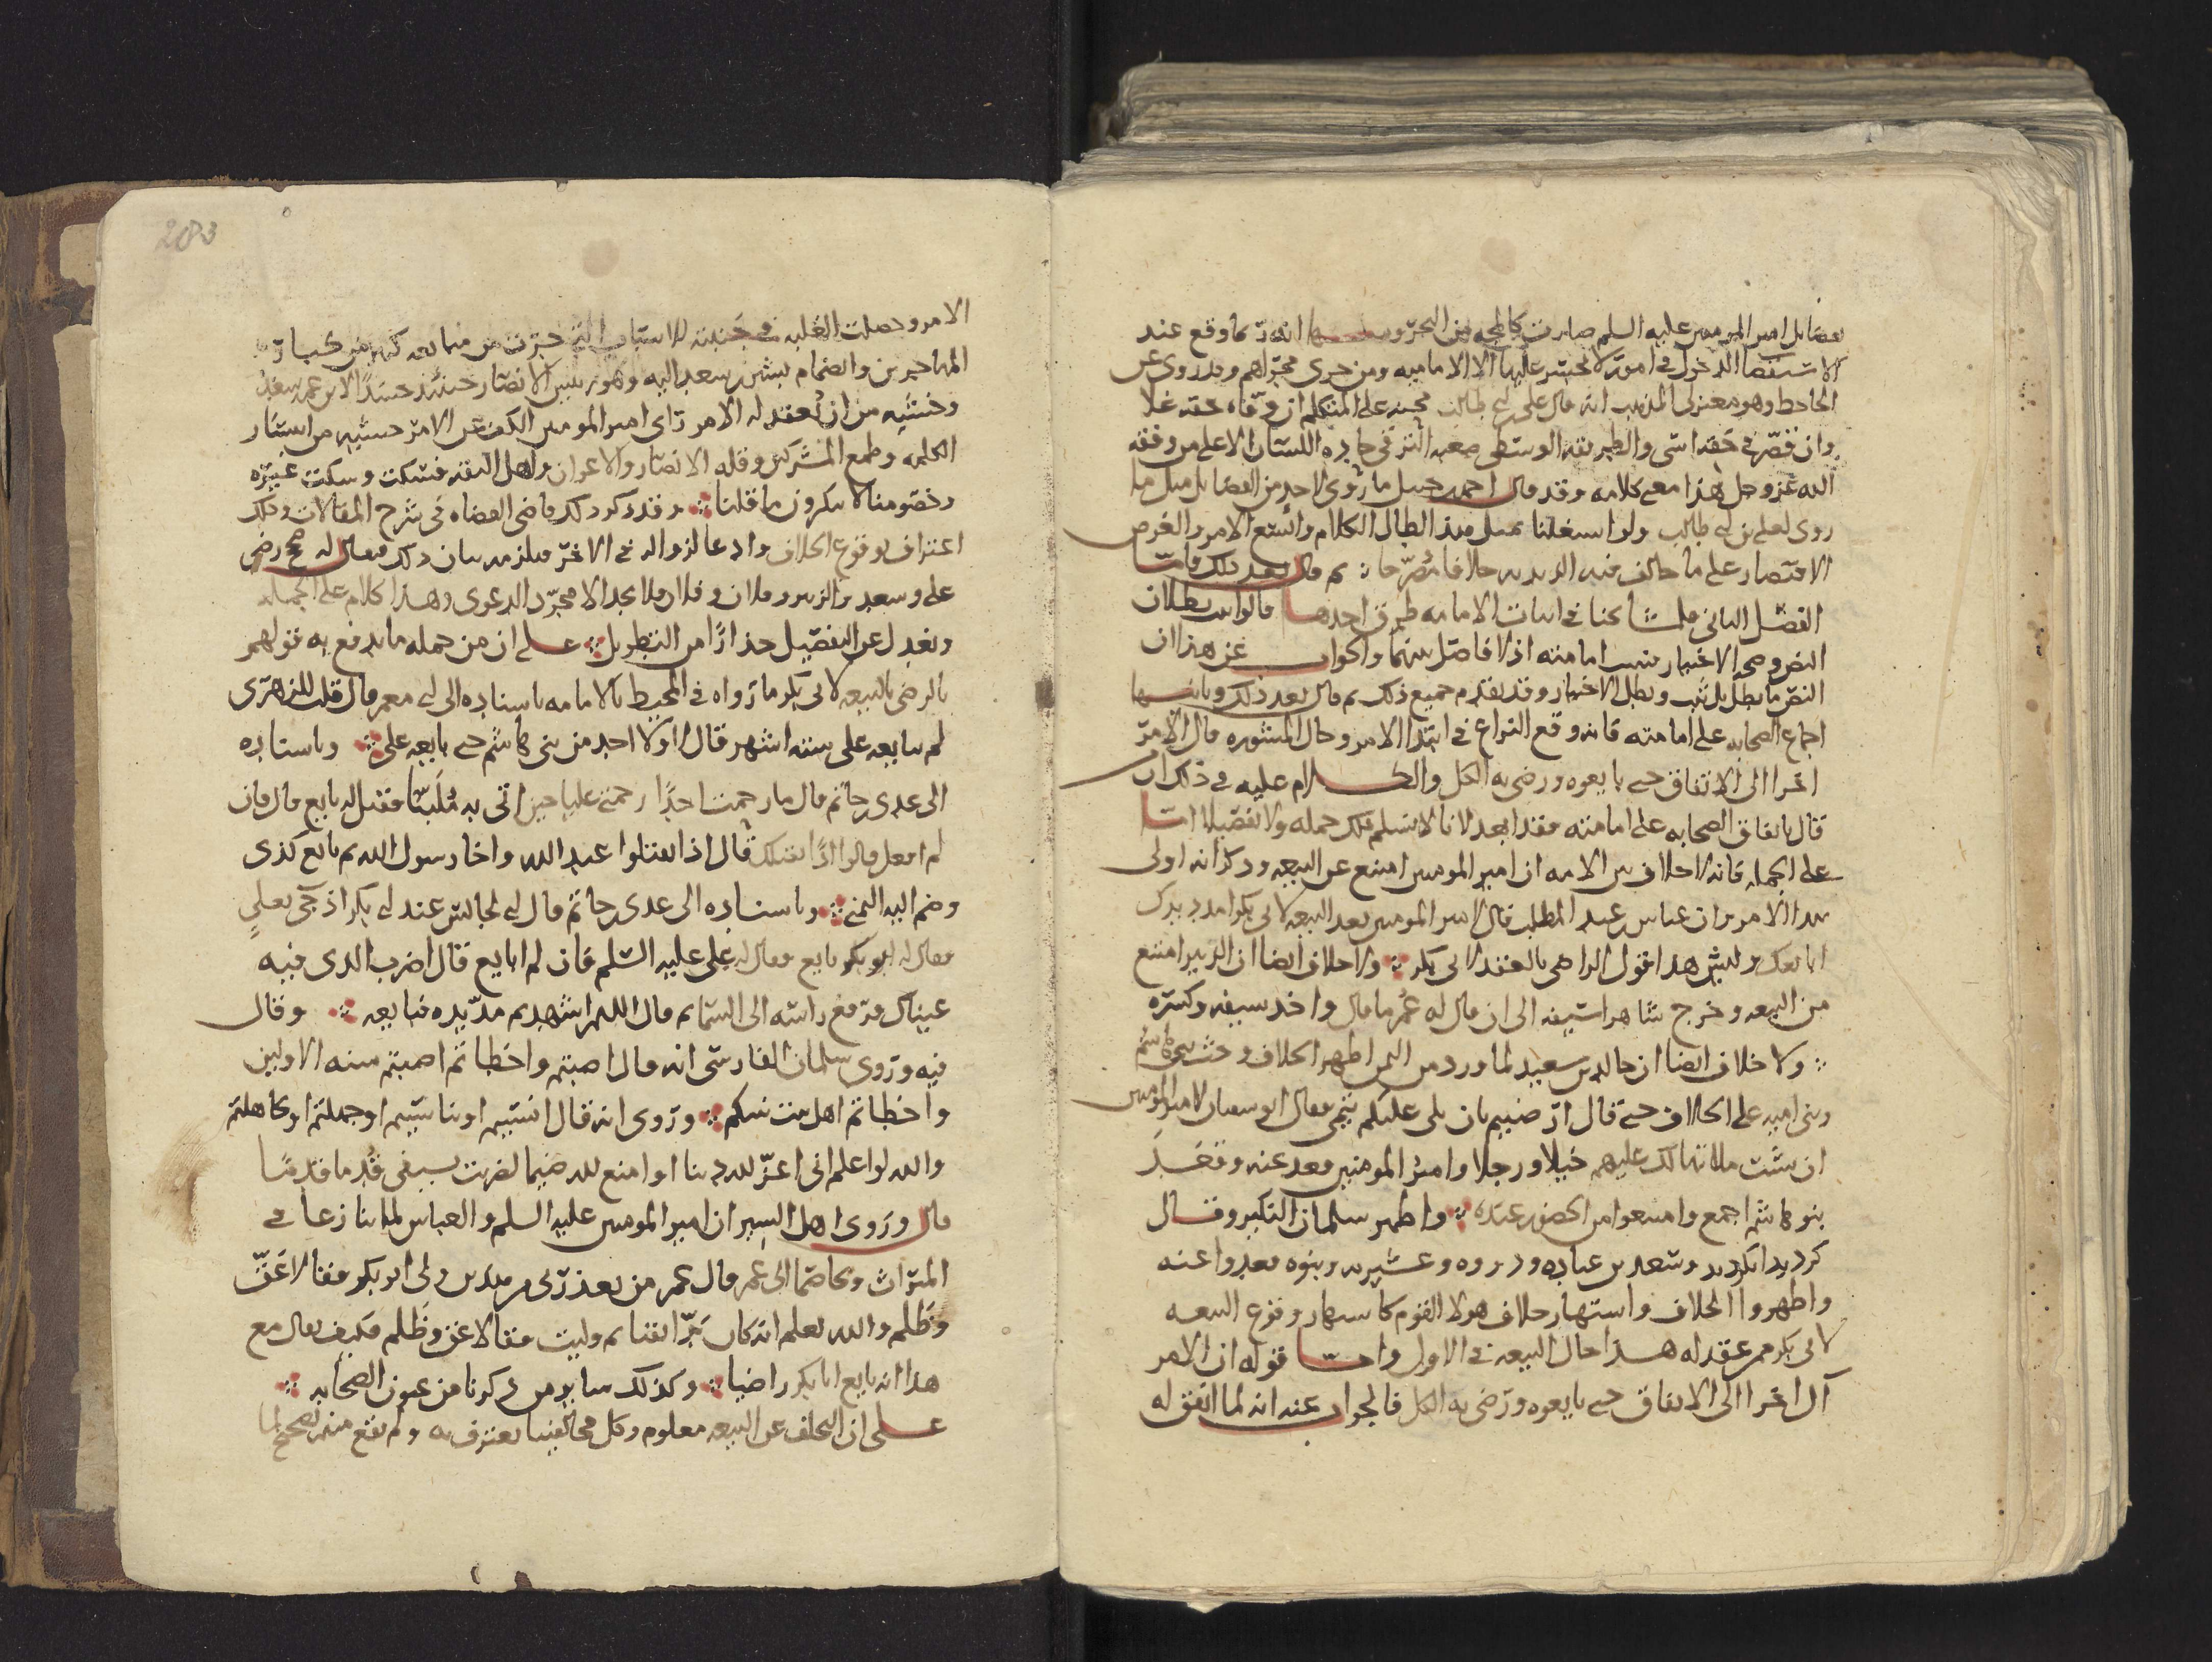 فضايل امير المومنين عليه السلم صارت كالمجه من البحر ومنها انه ربما وقع عند
الاستقصا الدخول في امور لا يجسر عليها الا الاماميه ومن جرى مجراهم وقد روى عن
الجاحظ وهو معتزلي المذهب انه قال علي بن ابي طالب محنه على المتكلم ان وفاه حقه غلا
وان قصر في حقه اسى والطريقه الوسطى صعبه الترقي حاده اللسان الا على من وفقه
الله عز وجل هذا معنى كلامه وقد قال احمد بن حنبل ما روى لاحد من الفضايل مثل ما
روى لعلي بن ابي طالب ولو اشتغلنا بمثل هذا لطال الكلام واتسع الامر والغرض
الاقتصار على ما خالف فيه الزيديه خلافا مصرحا ثم قال بعد ذلك فاما
الفصل الثاني فلمشائخنا في اثبات الامامه طرق احدها قالوا ان بطلان
النص وصح الاختيار ثبت امامته اذ لا فاصل بينهما والجواب عن هذا ان
النص ما بطل بل ثبت وبطل الاختيار وقد تقدم جميع ذلك ثم قال بعد ذلك وثانيها
اجماع الصحابه على امامته فانه وقع النزاع في ابتدا الامر وحال المشوره قال الامر
اخرا الى الاتفاق حتى بايعوه ورضي به الكل والكلام عليه في ذلك ان
قال باتفاق الصحابه على امامته فقد ابعد لانا لا نسلم ذلك جمله ولا تفصيلا اما
على الجمله فانه لا خلاف بين الامه ان امير المومنين امتنع عن البيعه وذكر انه اولى
بهذا الامر وان عباس بن عبد المطلب قال لامير المومنين بعد البيعه لابي بكر امدد يدك
ابايعك وليس هذا قول الراضي بالعقد لابي بكر ولا خلاف ايضا ان الزبير امتنع
من البيعه وخرج شاهرا سيفه الى ان قال له عمر ما قال واخذ سيفه وكسره
ولا خلاف ايضا ان خالد بن سعيد لما ورد من اليمن اظهر الخلاف وحث بني هاشم
وبني اميه على الخلاف حتى قال ارضيتم بان يلي عليكم تيمي فقال ابو سفيان لامير المومنين
ان شئت ملاتها لك عليهم خيلا ورجلا وامير المومنين قعد عنه وقعد
بنو هاشم اجمع وامتنعوا من الحضور عنده واظهر سلمان النكير وقال
كرديد ونكرديد وسعد بن عباده وذروه وعشيرته وبنوه قعدوا عنه
واظهروا الخلاف واشتهار خلاف هولا القوم كاشتهار وقوع البيعه
لابي بكر ممن عقد له هذا حال البيعه في الاول واما قوله ان الامر
آل اخرا الى الاتفاق حتى بايعوه ورضي به الكل فالجواب عنه انه لما اتفق له
203
الامر وحصلت الغلبه في جنبته للاسباب التي جرت من متابعه كثير من كبار
المهاجرين وانضمام بشير بن سعد اليه وهو رييس الانصار حينئذ حسدا لابن عمه سعد
وخشيه من ان يعقد له الامر راى امير المومنين الكف عن الامر خشيه من انتشار
الكلمه وطمع المشركين وقله الانصار والاعوان واهل الثقه فسكت وسكت غيره
وخصومنا لا ينكرون ما قلنا وقد ذكر ذلك قاضي القضاه في شرح المقالات وذلك
اعتراف بوقوع الخلاف وادعا لزواله في الاخر فيلزمه بيان ذلك فيقال له متى رضي
علي وسعد والزبير وفلان وفلان فلا يجد الا مجرد الدعوى وهذا كلام على الجمله
ونعدل عن التفصيل حذارا من التطويل على ان من جمله ما يدفع به قولهم
بالرضى بالبيعه لابي بكر ما رواه في المحيط بالامامه باسناده الى ابي معمر قال قلت للزهري
لم يبايعه علي سته اشهر قال لا ولا احد من بني هاشم حتى بايعه علي وباسناده
الى عدي بن حاتم قال ما رحمت احدا رحمتي عليا حين اتي به ملببا فقيل له بايع قال فان
لم افعل قالوا اذا نقتلك قال اذا تقتلوا عبد الله واخا رسول الله ثم بايع كذى
وضم اليه اليمنى وباسناده الى عدي بن حاتم قال اني لجالس عند ابي بكر اذ جي بعلي
فقال له ابو بكر بايع فقال له علي عليه السلم فان لم ابايع قال اضرب الذي فيه
عيناك فرفع راسه الى السما ثم قال اللهم اشهد ثم مد يده فبايعه وقال
فيه وروى سلمان الفارسي انه قال اصبتم واخطاتم اصبتم سنه الاولين
واخطاتم اهل بيت نبيكم وروى انه قال انسيتم او تناسيتم او جهلتم او تجاهلتم
والله لو اعلم اني اعز لله دينا او امنع لله ضيما لضربت بسيفي قدما قدما
قال وروى اهل السير ان امير المومنين عليه السلم والعباس لما تنازعا في
الميراث وتخاصما الى عمر قال عمر من يعذرني من هذين ولي ابو بكر فقالا عق
وظلم والله يعلم انه كان برا تقيا ثم وليت فقالا عق وظلم فكيف يقال مع
هذا انه بايع ابا بكر راضيا وكذلك ساير من ذكرنا من عيون الصحابه
على ان التخلف عن البيعه معلوم وكل مخالفينا يعترف به ولم يقع منهم تصحيح لما